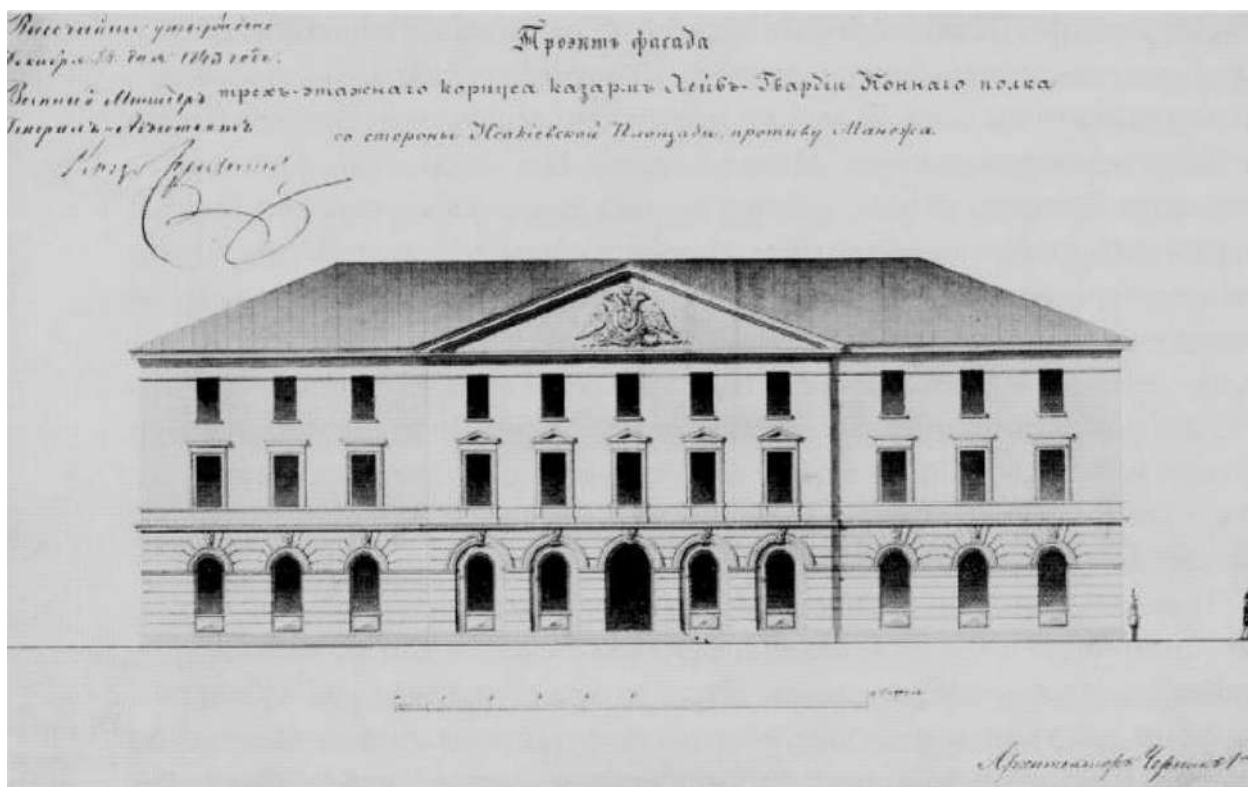 Высочайше утверждено
Декабря дня 1843 года.
Военный Министръ
Генералъ-Адъютантъ
Князь
Проэктъ фасада
трехъ-этажнаго корпуса казармъ Лейбъ-Гвардіи Коннаго полка
со стороны Исакіевской Площади, противу Манежа.
Архитекторъ Черникъ